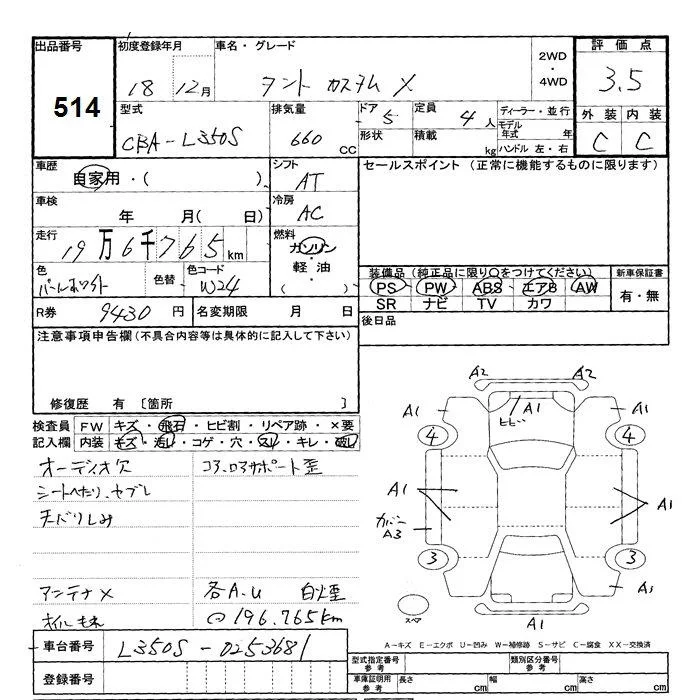 出品番号
514
初度登録年月
18 12月
車名・グレード
タント カスタム X
2WD
・
4WD
評価点
3.5
型式
CBA-L350S
排気量
660 CC
ドア 5
形状
定員 4人
積載 kg
ディーラー・並行
モデル年式 年
ハンドル 左・右
外装 内装
C C
車歴
自家用・( )
シフト
AT
セールスポイント (正常に機能するものに限ります)
車検
年 月( 日)
冷房
AC
走行
19万6千765km
燃料
ガソリン
・
軽油
( )
色
パールホワイト
色替
色コード
W24
装備品 (純正品に限り○をつけてください)
PS PW ABS エアB AW
SR ナビ TV カワ
新車保証書
有・無
R券 9430円
名変期限 月 日
後日品
注意事項申告欄(不具合内容等は具体的に記入して下さい)
修復歴 有 〔箇所 〕
検査員記入欄
FW キズ・飛石・ヒビ割・リペア跡・×要
内装 キズ・汚レ・コゲ・穴・スレ・キレ・破レ
オーディオ欠 コア、ロアサポート歪
シートヘたり、ヤブレ
天ばりしみ
アンテナ× 各A.U 白煙
オイルもれ @196.765km
A2 A2
A1 A1 A1
ヒビ
4 4
A1 A1
カバー
A3
3 3
A1
スペア
A-キズ E-エクボ U-凹み W-補修跡 S-サビ C-腐食 XX-交換済
車台番号 L350S-0253681
登録番号
型式指定番号
参考
類別区分番号
参考
車庫証明用
参考
長さ cm 幅 cm 高さ cm